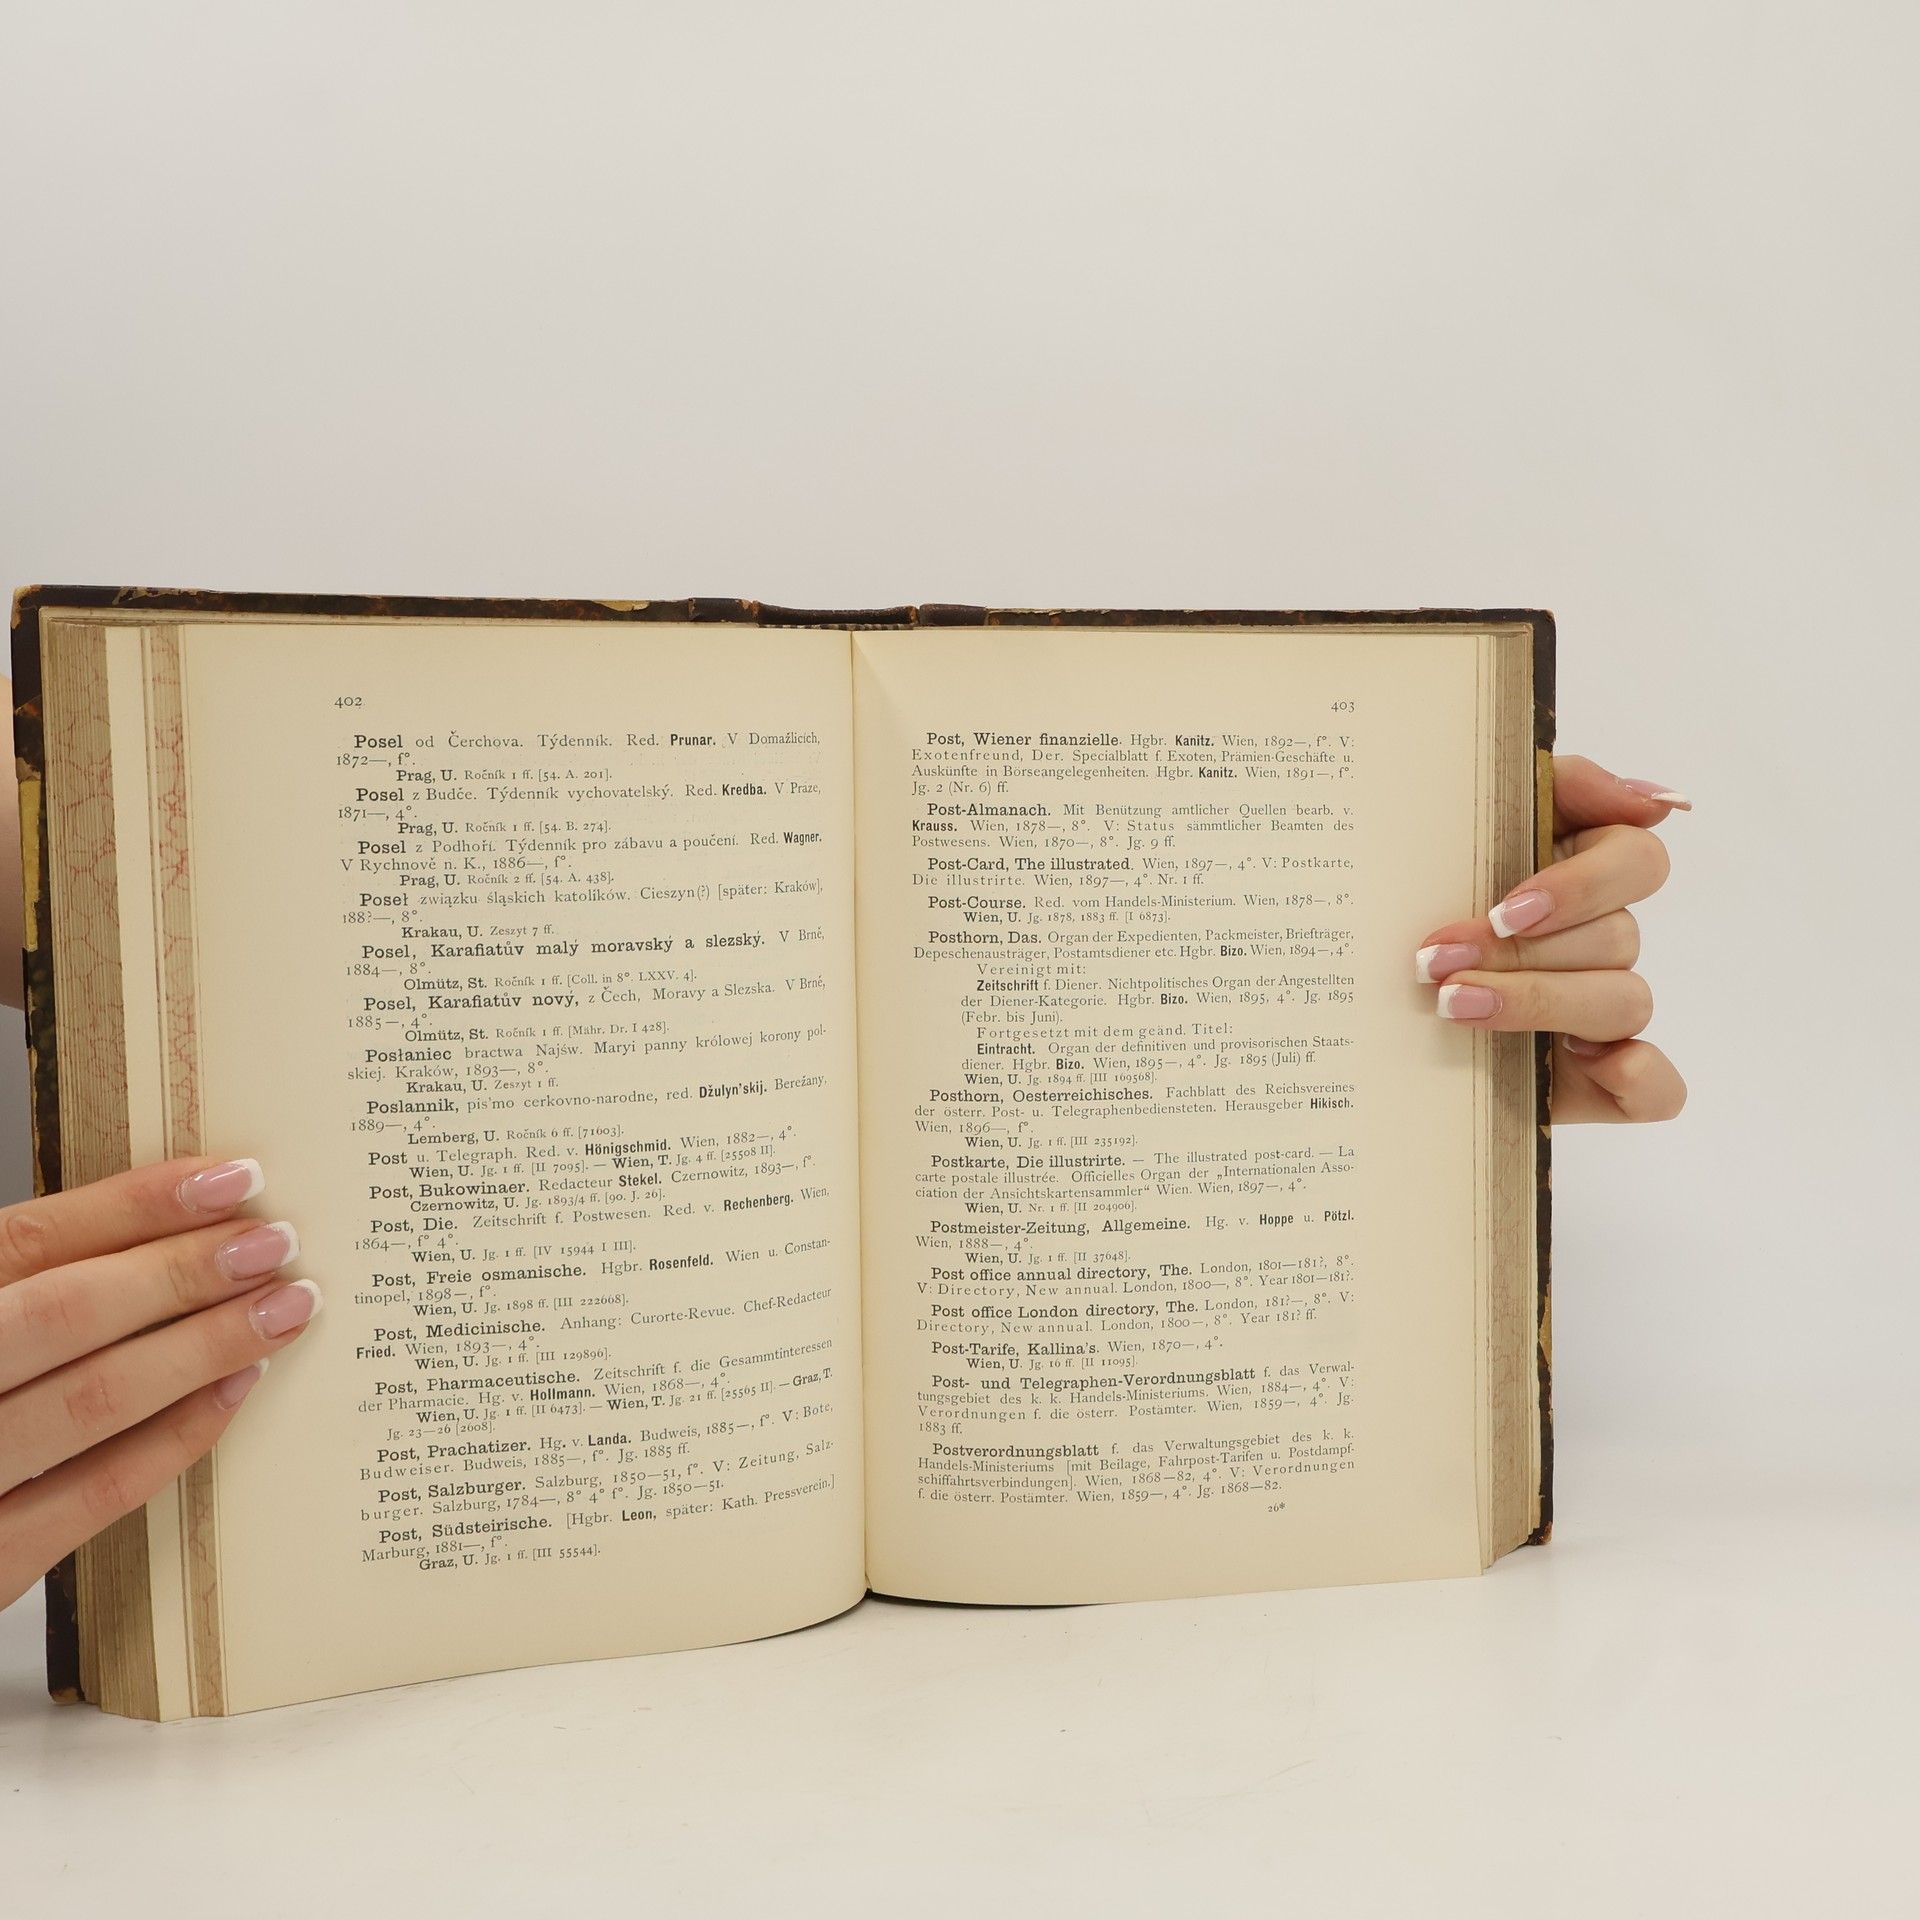 402
Posel od Čerchova. Týdenník. Red. Prunar. V Domažlicích,
1872—, f°.
Prag, U. Ročník 1 ff. [54. A. 201].
Posel z Budče. Týdenník vychovatelský. Red. Kredba. V Praze,
1871—, 4°.
Prag, U. Ročník 1 ff. [54. B. 274].
Posel z Podhoří. Týdenník pro zábavu a poučení. Red. Wagner.
V Rychnově n. K., 1886—, f°.
Prag, U. Ročník 2 ff. [54. A. 438].
Poseł związku śląskich katolików. Cieszyn(?) [später: Kraków],
188?—, 8°.
Krakau, U. Zeszyt 7 ff.
Posel, Karafiatův malý moravský a slezský. V Brně,
1884—, 8°.
Olmütz, St. Ročník 1 ff. [Coll. in 8°. LXXV. 4].
Posel, Karafiatův nový, z Čech, Moravy a Slezska. V Brně,
1885—, 4°.
Olmütz, St. Ročník 1 ff. [Mähr. Dr. I 428].
Posłaniec bractwa Najśw. Maryi panny królowej korony pol-
skiej. Kraków, 1893—, 8°.
Krakau, U. Zeszyt 1 ff.
Poslannik, pis'mo cerkovno-narodne, red. Džulyn'skij. Berežany,
1889—, 4°.
Lemberg, U. Ročník 6 ff. [71603].
Post u. Telegraph. Red. v. Hönigschmid. Wien, 1882—, 4°.
Wien, U. Jg. 1 ff. [II 7095]. — Wien, T. Jg. 4 ff. [25508 II].
Post, Bukowinaer. Redacteur Stekel. Czernowitz, 1893—, f°.
Czernowitz, U. Jg. 1893/4 ff. [90. J. 26].
Post, Die. Zeitschrift f. Postwesen. Red. v. Rechenberg. Wien,
1864—, f° 4°.
Wien, U. Jg. 1 ff. [IV 15944 I III].
Post, Freie osmanische. Hgbr. Rosenfeld. Wien u. Constan-
tinopel, 1898—, f°.
Wien, U. Jg. 1898 ff. [III 222668].
Post, Medicinische. Anhang: Curorte-Revue. Chef-Redacteur
Fried. Wien, 1893—, 4°.
Wien, U. Jg. 1 ff. [III 129896].
Post, Pharmaceutische. Zeitschrift f. die Gesammtinteressen
der Pharmacie. Hg. v. Hollmann. Wien, 1868—, 4°.
Wien, U. Jg. 1 ff. [II 6473]. — Wien, T. Jg. 21 ff. [25565 II]. — Graz, T.
Jg. 23—26 [2608].
Post, Prachatizer. Hg. v. Landa. Budweis, 1885—, f°. V: Bote,
Budweiser. Budweis, 1885—, f°. Jg. 1885 ff.
Post, Salzburger. Salzburg, 1850—51, f°. V: Zeitung, Salz-
burger. Salzburg, 1784—, 8° 4° f°. Jg. 1850—51.
Post, Südsteirische. [Hgbr. Leon, später: Kath. Pressverein.]
Marburg, 1881—, f°.
Graz, U. Jg. 1 ff. [III 55544].
403
Post, Wiener finanzielle. Hgbr. Kanitz. Wien, 1892—, f°. V:
Exotenfreund, Der. Specialblatt f. Exoten, Prämien-Geschäfte u.
Auskünfte in Börseangelegenheiten. Hgbr. Kanitz. Wien, 1891—, f°.
Jg. 2 (Nr. 6) ff.
Post-Almanach. Mit Benützung amtlicher Quellen bearb. v.
Krauss. Wien, 1878—, 8°. V: Status sämmtlicher Beamten des
Postwesens. Wien, 1870—, 8°. Jg. 9 ff.
Post-Card, The illustrated. Wien, 1897—, 4°. V: Postkarte,
Die illustrirte. Wien, 1897—, 4°. Nr. 1 ff.
Post-Course. Red. vom Handels-Ministerium. Wien, 1878—, 8°.
Wien, U. Jg. 1878, 1883 ff. [I 6873].
Posthorn, Das. Organ der Expedienten, Packmeister, Briefträger,
Depeschenausträger, Postamtsdiener etc. Hgbr. Bizo. Wien, 1894—, 4°.
Vereinigt mit:
Zeitschrift f. Diener. Nichtpolitisches Organ der Angestellten
der Diener-Kategorie. Hgbr. Bizo. Wien, 1895, 4°. Jg. 1895
(Febr. bis Juni).
Fortgesetzt mit dem geänd. Titel:
Eintracht. Organ der definitiven und provisorischen Staats-
diener. Hgbr. Bizo. Wien, 1895—, 4°. Jg. 1895 (Juli) ff.
Wien, U. Jg. 1894 ff. [III 169568].
Posthorn, Oesterreichisches. Fachblatt des Reichsvereines
der österr. Post- u. Telegraphenbediensteten. Herausgeber Hikisch.
Wien, 1896—, f°.
Wien, U. Jg. 1 ff. [III 235192].
Postkarte, Die illustrirte. — The illustrated post-card. — La
carte postale illustrée. Officielles Organ der „Internationalen Asso-
ciation der Ansichtskartensammler“ Wien. Wien, 1897—, 4°.
Wien, U. Nr. 1 ff. [II 204906].
Postmeister-Zeitung, Allgemeine. Hg. v. Hoppe u. Pötzl.
Wien, 1888—, 4°.
Wien, U. Jg. 1 ff. [II 37648].
Post office annual directory, The. London, 1801—181?, 8°.
V: Directory, New annual. London, 1800—, 8°. Year 1801—181?.
Post office London directory, The. London, 181?—, 8°. V:
Directory, New annual. London, 1800—, 8°. Year 181? ff.
Post-Tarife, Kallina's. Wien, 1870—, 4°.
Wien, U. Jg. 16 ff. [II 11095].
Post- und Telegraphen-Verordnungsblatt f. das Verwal-
tungsgebiet des k. k. Handels-Ministeriums. Wien, 1884—, 4°. V:
Verordnungen f. die österr. Postämter. Wien, 1859—, 4°. Jg.
1883 ff.
Postverordnungsblatt f. das Verwaltungsgebiet des k. k.
Handels-Ministeriums [mit Beilage, Fahrpost-Tarifen u. Postdampf-
schiffahrtsverbindungen]. Wien, 1868—82, 4°. V: Verordnungen
f. die österr. Postämter. Wien, 1859—, 4°. Jg. 1868—82.
26*